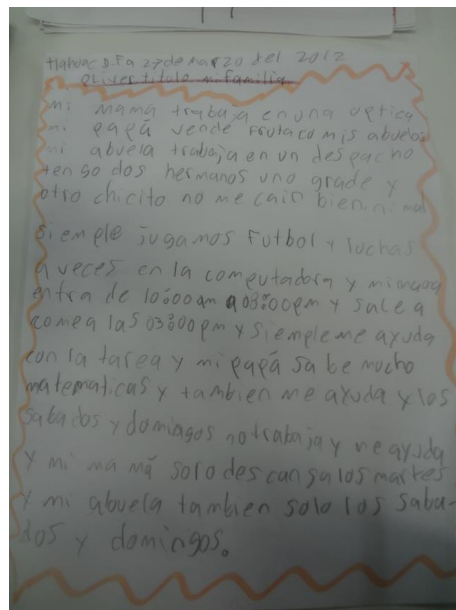 tlahuac D.F a 27 de marzo del 2012
oliver titulo mi familia
mi mamá trabaja en una optica
mi papá vende fruta co mis abuelos
mi abuela trabaja en un despacho
tengo dos hermanos uno grade y
otro chicito no me cain bien ni mal
siemple jugamos futbol y luchas
a veces en la computadora y mi mama
entra de 10:00am a 08:00pm y sale a
comea las 03:00pm y siempleme ayuda
con la tarea y mi papá sabe mucho
matematicas y tambien me ayuda y los
sabados y domiagos no trabaja y me ayuda
y mi mamá solo descansa los martes
y mi abuela tambien solo los saba-
dos y domingos.